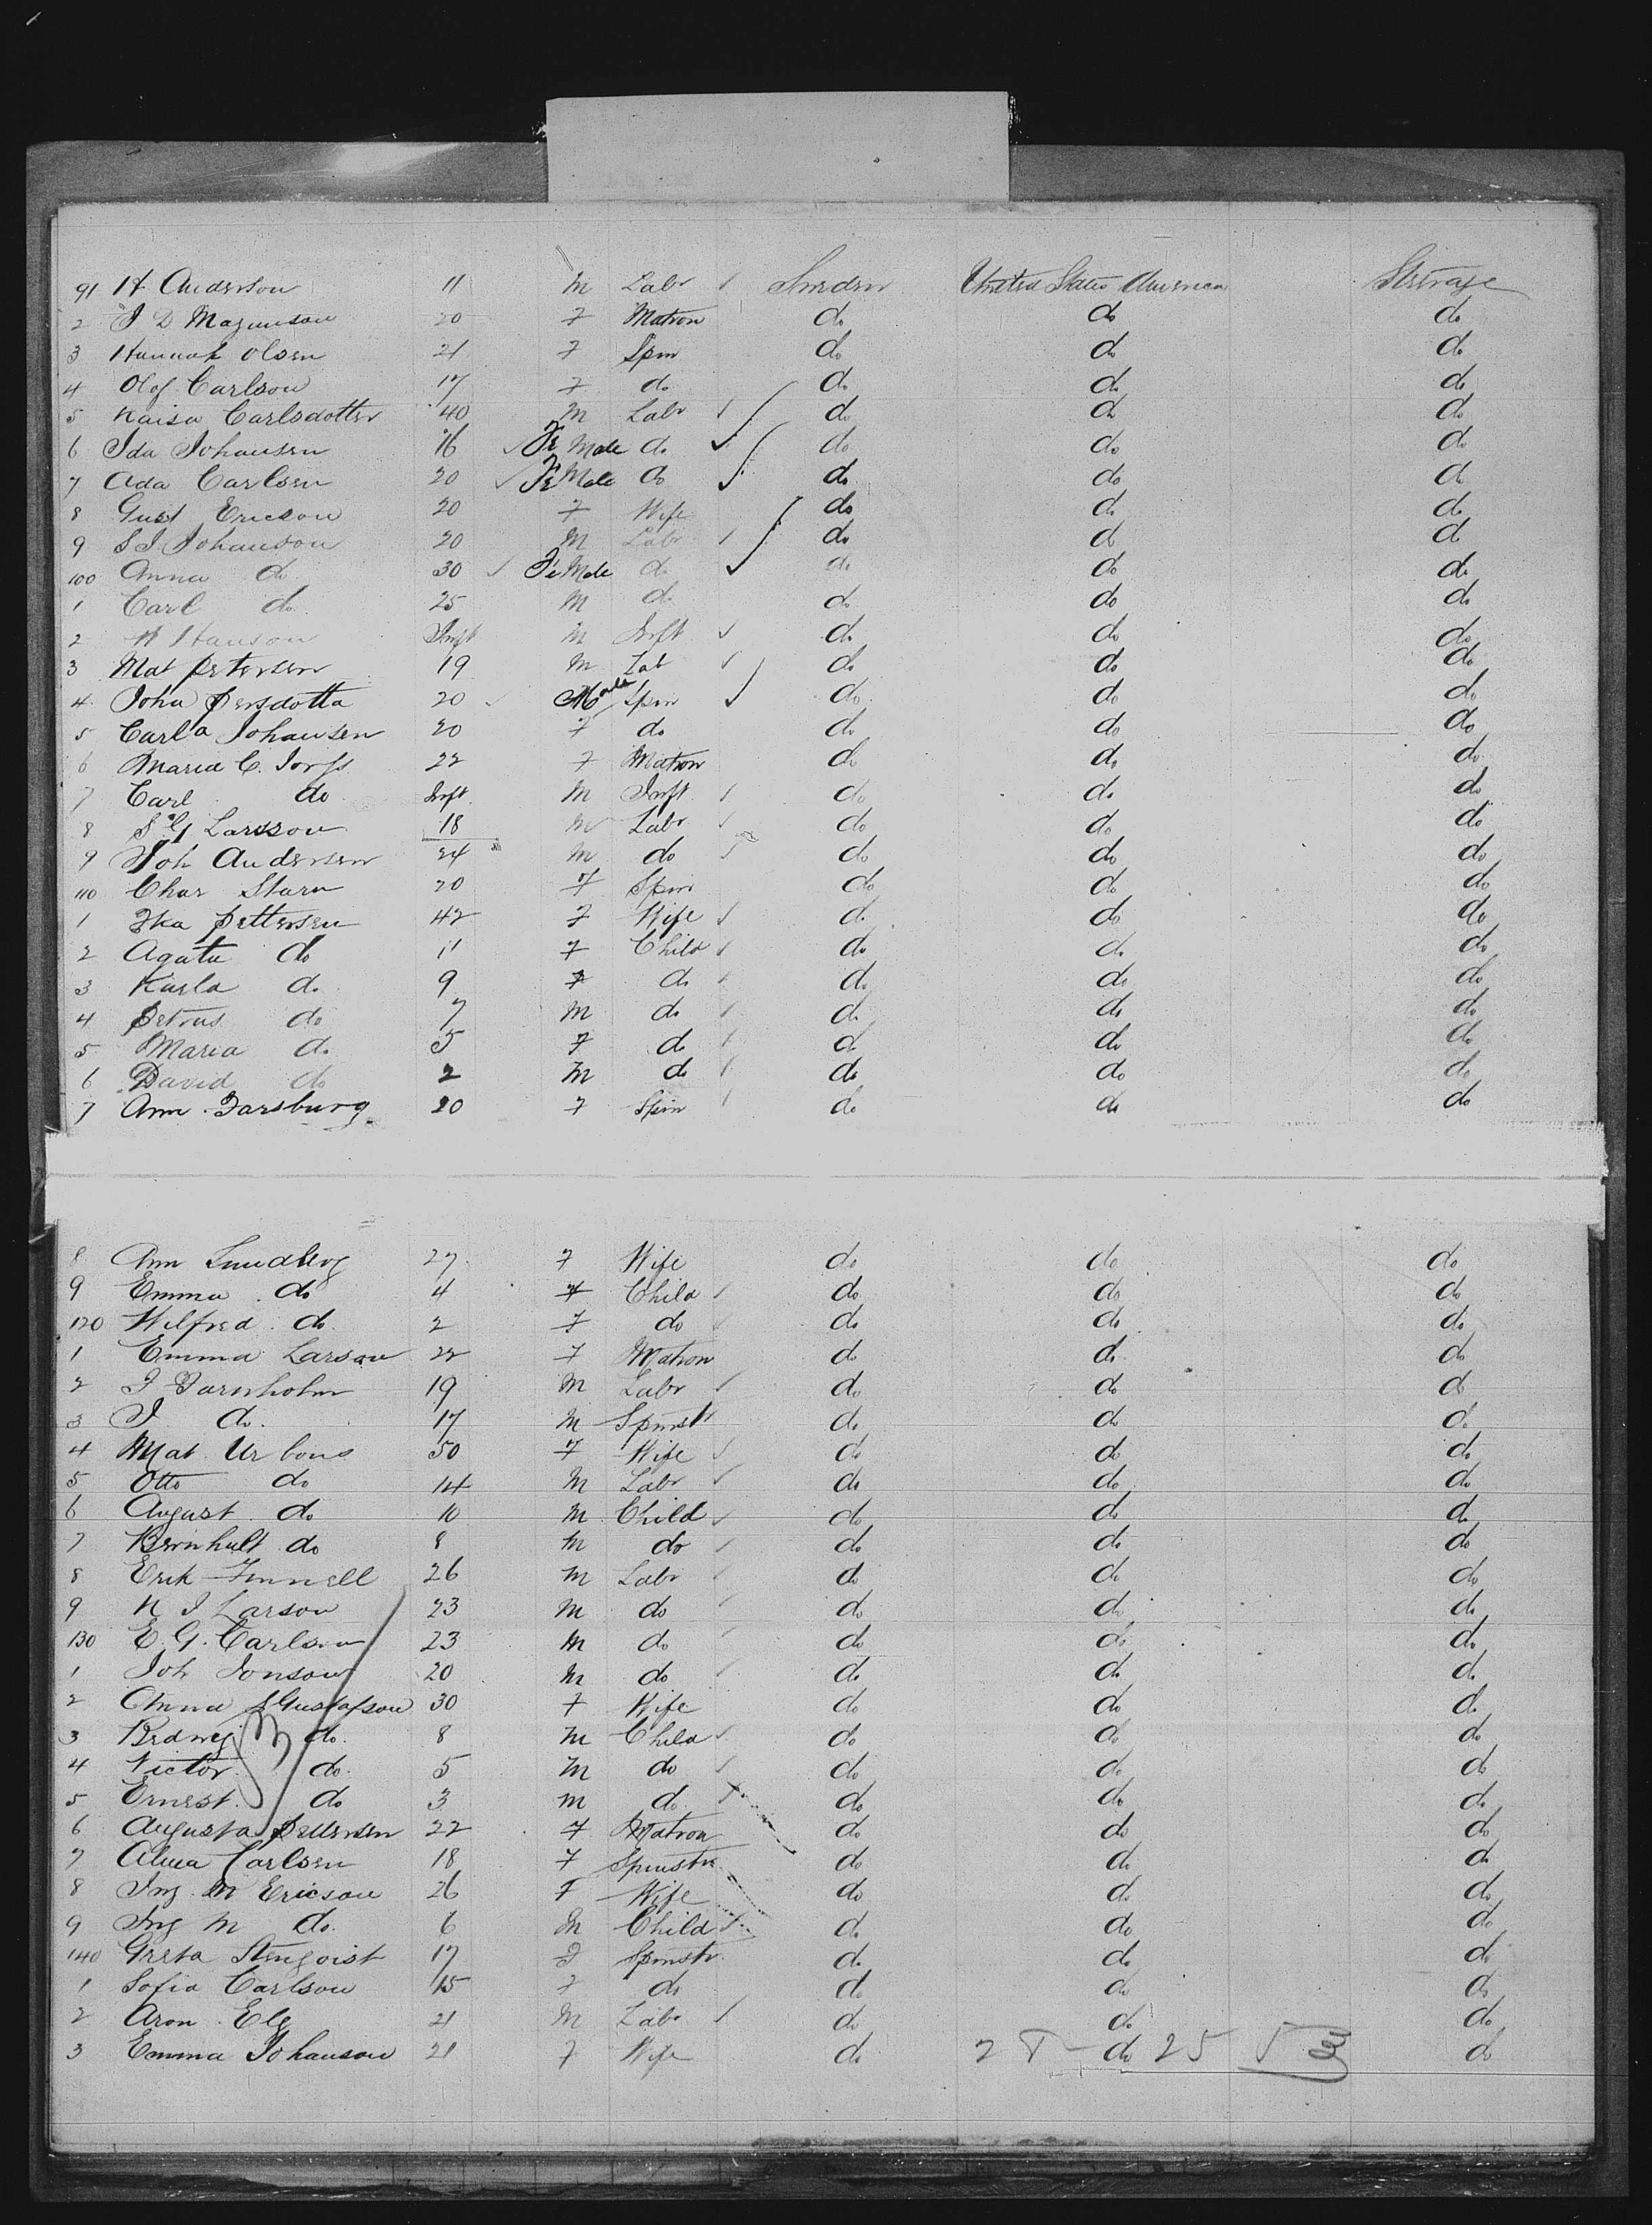 91 H Anderson 11 M Labr Sweden United States America Steerage
2 J D Magnuson 20 F Matron do do do
3 Hannah Olsen 21 F Spin do do do
4 Olof Carlson 17 F do do do do
5 Kaisa Carlsdotter 40 M Labr do do do
6 Ida Johansen 16 Fe Male do do do do
7 Ada Carlsen 20 Fe Male do do do do
8 Gust Ericson 20 F Wife do do do
9 S J Johanson 20 M Labr do do do
100 Anna do 30 Fe Male do do do do
1 Carl do 25 M do do do do
2 Hanson Inft M Inft do do do
3 Mat Petersen 19 M Lab do do do
4 Joha Persdotta 20 Male Spin do do do
5 Carla Johansen 20 F do do do do
6 Maria C. 22 F Matron do do do
7 Carl do Inft M Inft do do do
8 S G Larsson 18 M Labr do do do
9 Joh Andersen 24 M do do do do
110 Char Starn 20 F Spin do do do
1 Pettersen 42 F Wife do do do
2 Agata do 11 F Child do do do
3 Karla do 9 F do do do do
4 Petrus do 7 M do do do do
5 Maria do 5 F do do do do
6 David do 2 M do do do do
7 Ann Farsburg 20 F Spin do do do
8 Ann Lundberg 27 F Wife do do do
9 Emma do 4 F Child do do do
120 Wilfred do 2 F do do do do
1 Emma Larson 22 F Matron do do do
2 J Farnholm 19 M Labr do do do
3 J do 17 M Spinstr do do do
4 Mat Urbons 50 F Wife do do do
5 Otto do 14 M Labr do do do
6 August do 10 M Child do do do
7 Bernhult do 8 M do do do do
8 Erik Finnell 26 M Labr do do do
9 N J Larson 23 M do do do do
130 E. G. Carlson 23 M do do do do
1 Joh Jonson 20 M do do do do
2 Anna S Gustafson 30 F Wife do do do
3 do 8 M Child do do do
4 Victor do 5 M do do do do
5 Ernest do 3 M do do do do
6 Augusta Pettersen 22 F Matron do do do
7 Alma Carlsen 18 F Spinstr do do do
8 Ing M Ericson 26 F Wife do do do
9 Ing M do 6 M Child do do do
140 Greta Stenqoist 17 F Spinstr do do do
1 Sofia Carlson 15 F do do do do
2 Aron Elg 21 M Labr do do do
3 Emma Johanson 21 F Wife do do 25 53 do